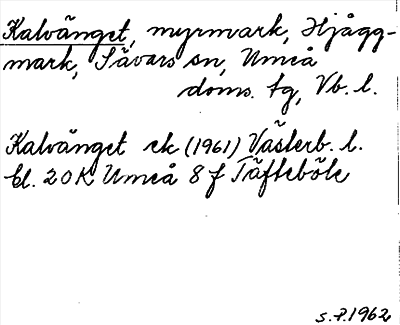 Kalvänget, myrmark, Hjågg-
mark, Sävars sn, Umeå
doms. tg, Vb. l.
Kalvänget ek (1961) Västerb. l.
bl. 20K Umeå 8 f Täfteböle
s. P. 1962